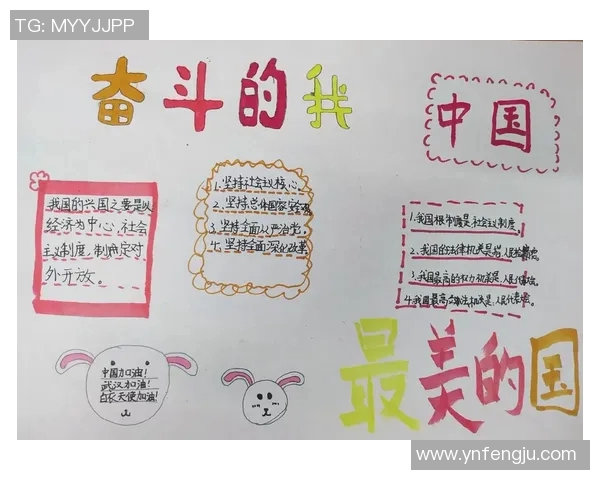 TG: MYYJJPP
奋斗的我
中国
我国的兴国之要是以
经济为中心,社会
主义制度,制商定对
外开放。
1.坚持社会主义核心.
2.坚持总体国家安全观
3.坚持全面从严治党.
4.坚持全面深化改革
1.我国根本制度是社会主义制度.
2.我国的法律机关是
3.我国最高的权力机关是,人民代表
4.我国最高 机关是,人民代表
中国加油!
武汉加油!
白衣天使加油!
最美的国
www.ynfengju.com